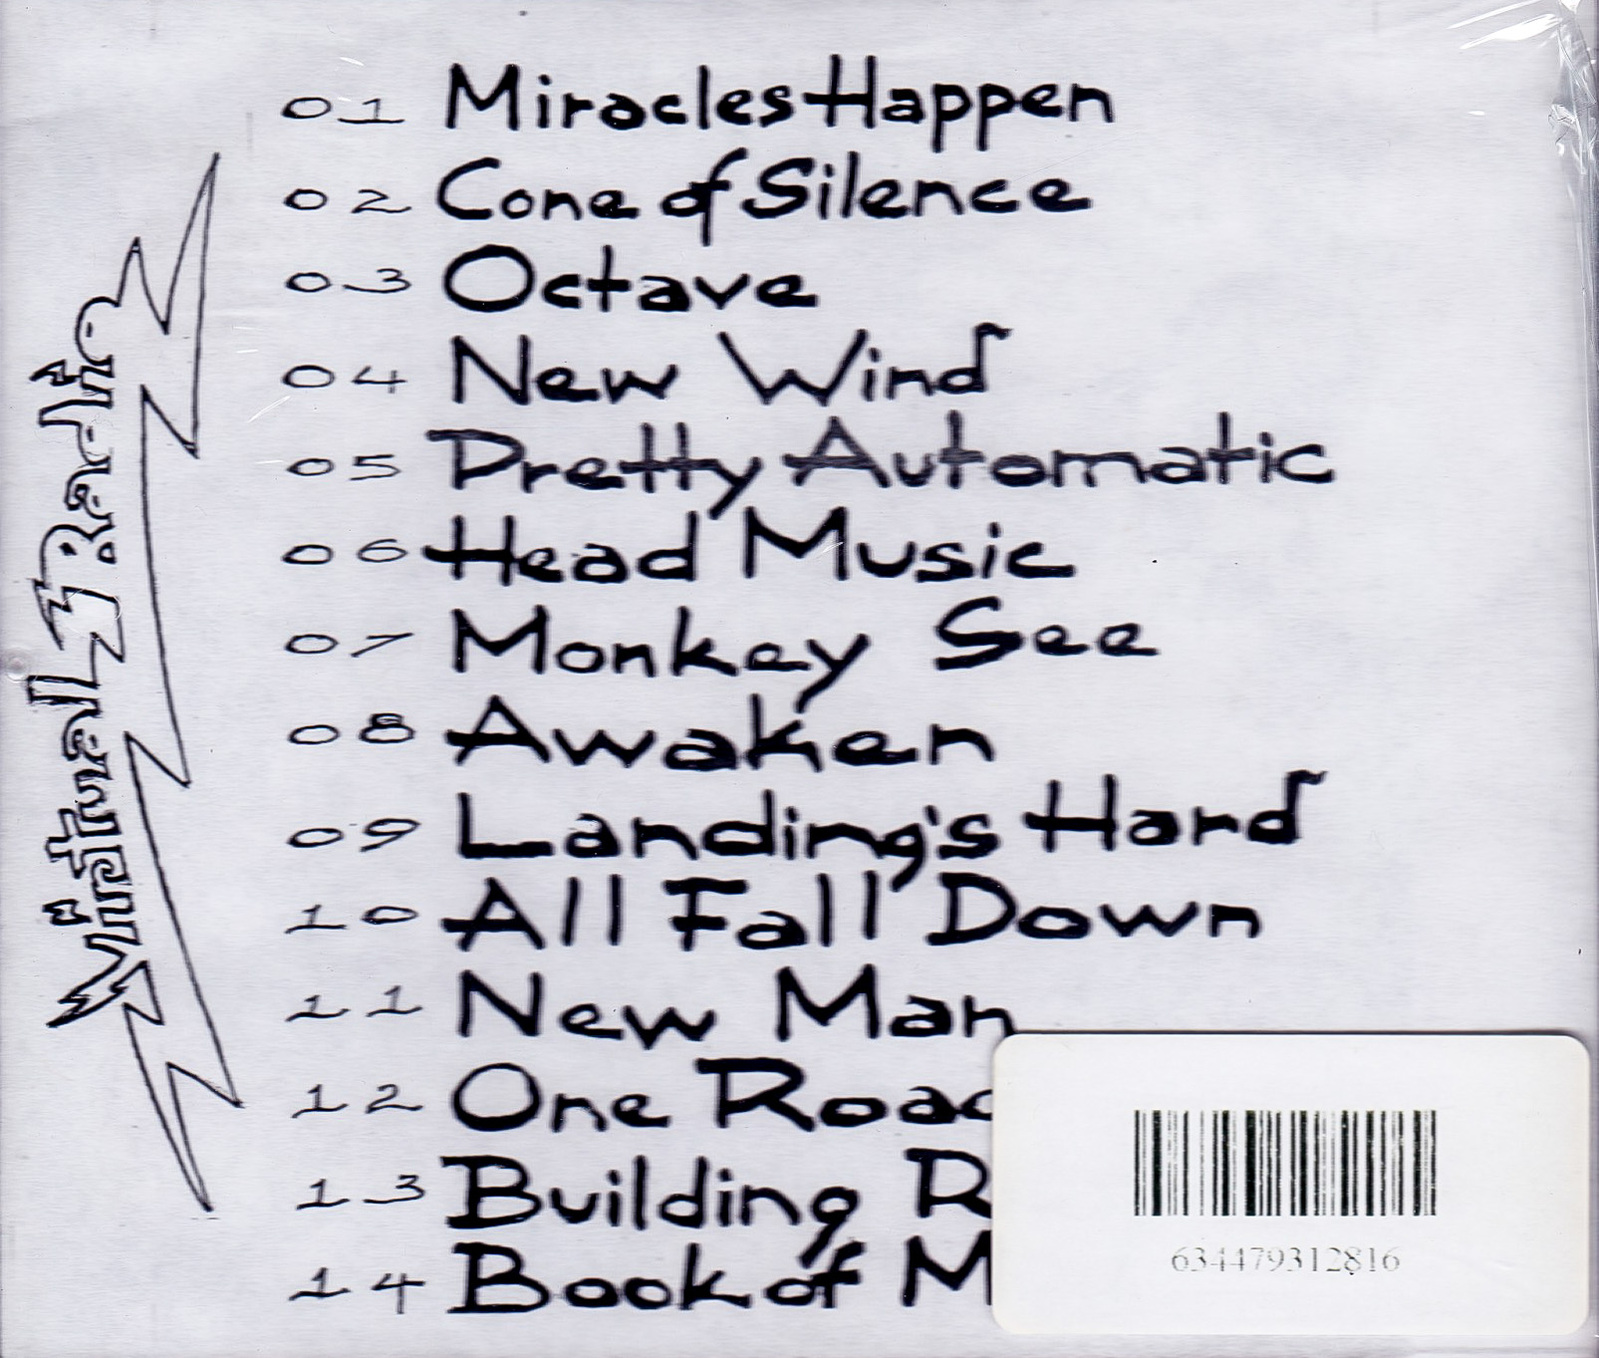 01 Miracles Happen
02 Cone of Silence
03 Octave
04 New Wind
05 Pretty Automatic
06 Head Music
07 Monkey See
08 Awaken
09 Landing's Hard
10 All Fall Down
11 New Man
12 One Road
13 Building R
14 Book of M
Virtual Radio
634479312816